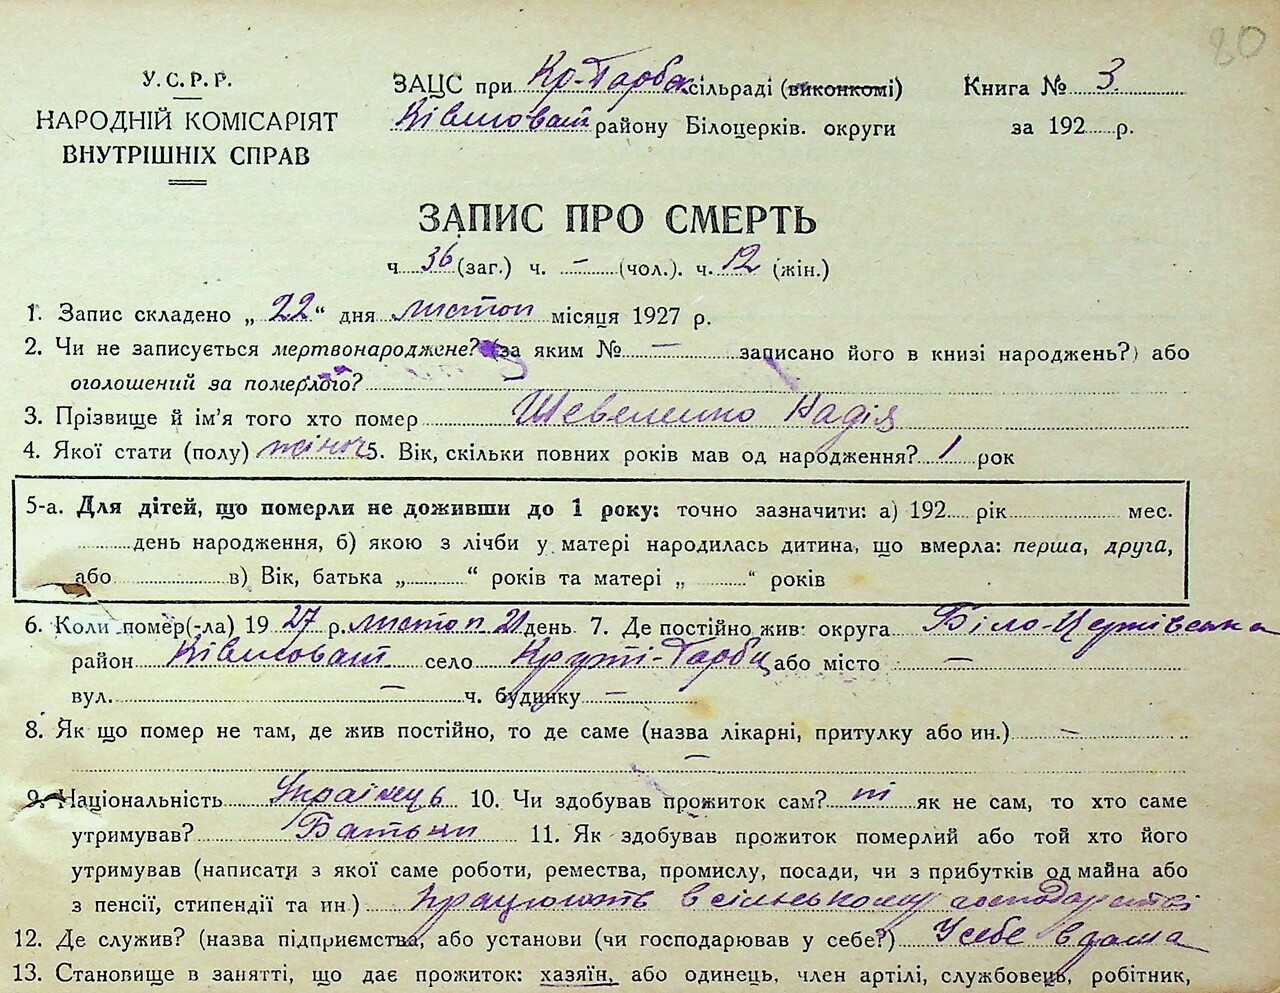 80
У.С.Р.Р.
НАРОДНІЙ КОМІСАРІЯТ
ВНУТРІШНІХ СПРАВ
ЗАЦС при Кр-Горбах сільраді (виконкомі)
Ківшоват району Білоцерків. округи
Книга № 3
за 192 р.
ЗАПИС ПРО СМЕРТЬ
ч. 36 (заг.) ч. – (чол.). ч. 12 (жін.)
1. Запис складено „ 22 “ дня листоп місяця 1927 р.
2. Чи не записується мертвонароджене? (за яким № – записано його в книзі народжень?) або
оголошений за померлого?
3. Прізвище й ім'я того хто помер Надія
4. Якої стати (полу) жіноч 5. Вік, скільки повних років мав од народження? 1 рок
5-а. Для дітей, що померли не доживши до 1 року: точно зазначити: а) 192 рік мес.
день народження, б) якою з лічби у матері народилась дитина, що вмерла: перша, друга,
або в) Вік, батька „ “ років та матері „ “ років
6. Коли помер(-ла) 19 27 р. листоп 21 день 7. Де постійно жив: округа Біло-Церківська
район Ківшоват село Круті-Горби або місто –
вул. – ч. будинку –
8. Як що помер не там, де жив постійно, то де саме (назва лікарні, притулку або ин.) –
–
9. Національність Українець 10. Чи здобував прожиток сам? ні як не сам, то хто саме
утримував? Батьки 11. Як здобував прожиток померлий або той хто його
утримував (написати з якої саме роботи, ремества, промислу, посади, чи з прибутків од майна або
з пенсії, стипендії та ин.) Працюють в сільському господарстві
12. Де служив? (назва підприємства, або установи (чи господарював у себе?) У себе вдома
13. Становище в занятті, що дає прожиток: хазяїн, або одинець, член артілі, службовець, робітник,